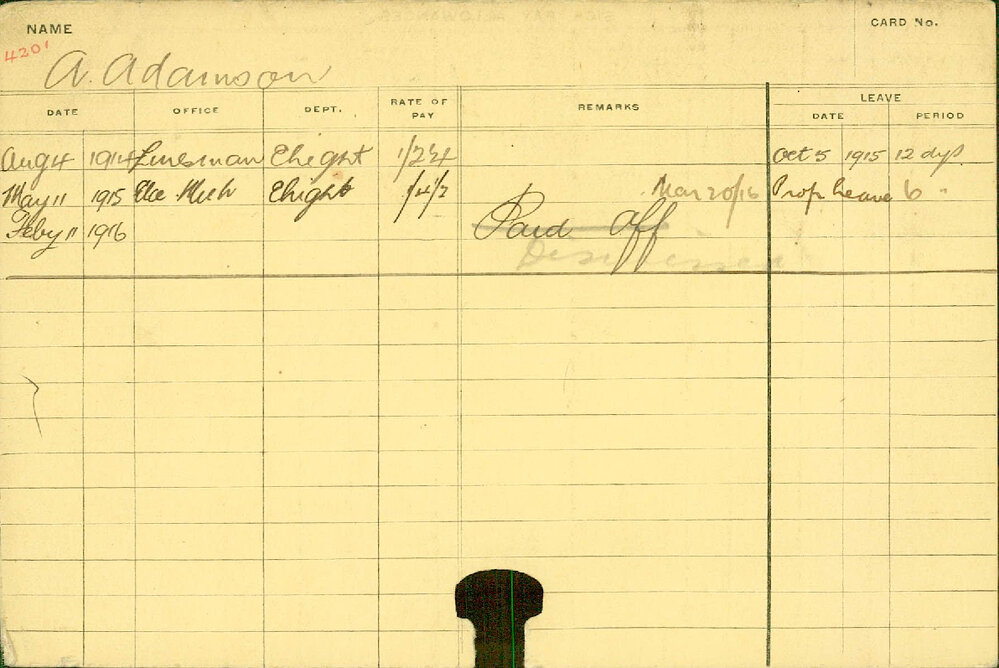 NAME
CARD No.
4201
A. Adamson
DATE OFFICE DEPT. RATE OF PAY REMARKS LEAVE
DATE PERIOD
Aug 4 1914 Linesman Elect Lght Oct 5 1915 12 dys
May 11 1915 Elec Mech Mar 20/16 Prop Leave 6 "
Feby 11 1916 Paid Off